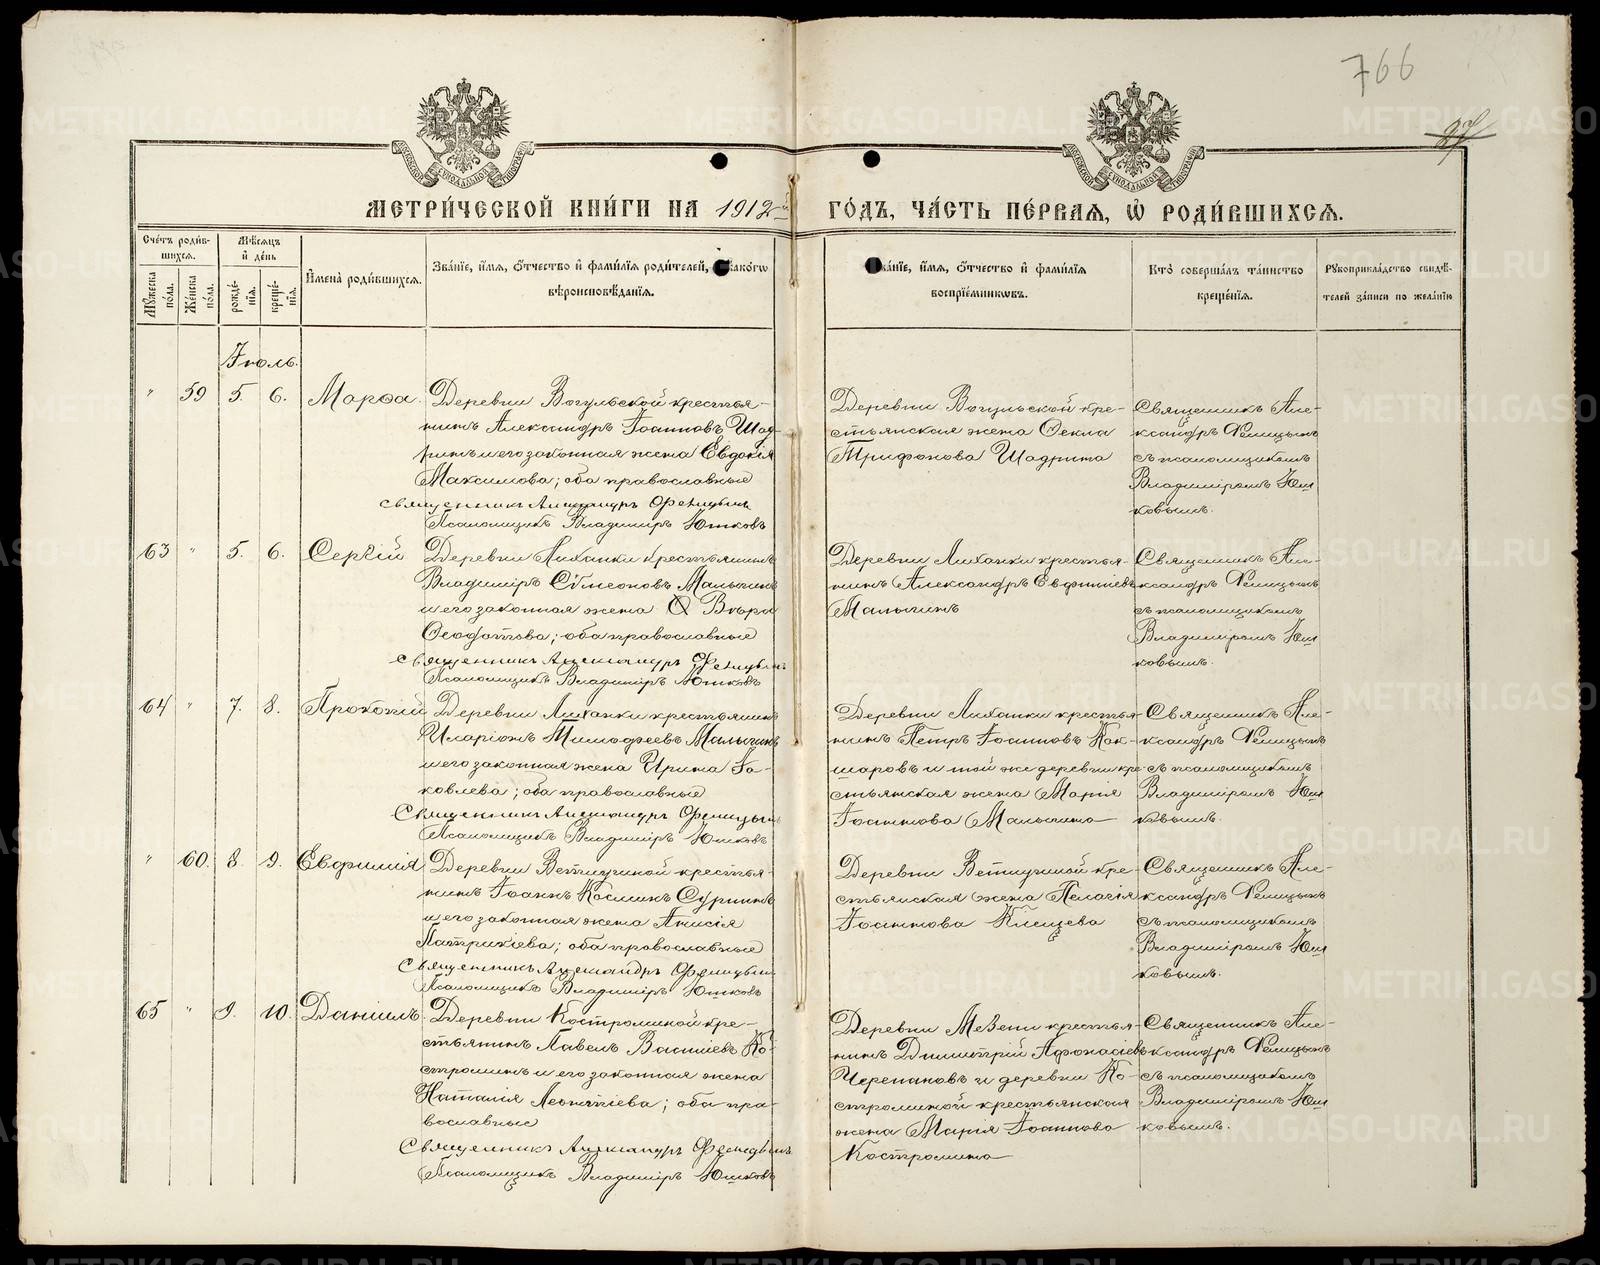 766
27
МЕТРИ́ЧЕСКОЙ КНИ́ГИ НА 1912й
ГО́ДЪ, ЧА́СТЬ ПЕ́РВАЯ, Ѡ҆ РОДИ́ВШИХСЯ.
Сче́тъ роди́в-
шихся.
Мꙋ́жеска по́ла.
Же́нска по́ла.
Мѣ́сяцъ
и҆ де́нь
рожде́-
нїя.
креще́-
нїя.
И҆мена̀ роди́вшихся.
Зва́нїе, и҆́мя, ѻ҆́тчество и҆ фами́лїя роди́телей, и҆ како́гѡ
вѣроисповѣ́данїя.
Зва́нїе, и҆́мя, ѻ҆́тчество и҆ фами́лїя
воспрїе́мникѡвъ.
Кто̀ соверша́лъ та́инство
креще́нїя.
Рꙋкоприкла́дство свидѣ́-
телей за́писи по жела́нїю
Іюль.
" 59 5. 6. Марѳа.
Деревни Вогульской крестья-
нинъ Александръ Іоанновъ Шад-
ринъ и его законная жена Евдокія
Максимова; оба православные
Священникъ Александръ Феницынъ
Псаломщикъ Владиміръ Юшковъ
Деревни Вогульской кре-
стьянская жена Ѳекла
Трифонова Шадрина
Священникъ Але-
ксандръ Феницынъ
съ псаломщикомъ
Владиміромъ Юш
ковымъ.
63 " 5. 6. Сергій
Деревни Ляханки крестьянинъ
Владиміръ Сѵмеоновъ Малыгинъ
и его законная жена Вѣра
Ѳеодотова; оба православные
Священникъ Александръ Феницынъ
Псаломщикъ Владиміръ Юшковъ
Деревни Ляханки крестья-
нинъ Александръ Евфиміевъ
Малыгинъ
Священникъ Але-
ксандръ Феницынъ
съ псаломщикомъ
Владиміромъ Юш
ковымъ.
64 " 7. 8. Прокопій
Деревни Ляханки крестьянинъ
Иларіонъ Тимофеевъ Малыгинъ
и его законная жена Ирина Іа-
ковлева; оба православные
Священникъ Александръ Феницынъ
Псаломщикъ Владиміръ Юшковъ
Деревни Ляханки крестья-
нинъ Петръ Іоанновъ Кок-
шаровъ и той же деревни кре-
стьянская жена Марія
Іоаннова Малыгина
Священникъ Але-
ксандръ Феницынъ
съ псаломщикомъ
Владиміромъ Юш
ковымъ.
" 60. 8. 9. Евфимія
Деревни Ветлугиной крестья-
нинъ Іоаннъ Косминъ Суринъ
и его законная жена Анисія
Патрикіева; оба православные
Священникъ Александръ Феницынъ
Псаломщикъ Владиміръ Юшковъ
Деревни Ветлугиной кре-
стьянская жена Пелагія
Іоаннова Клещева
Священникъ Але-
ксандръ Феницынъ
съ псаломщикомъ
Владиміромъ Юш
ковымъ.
65 " 9. 10. Даніилъ.
Деревни Костроминой кре-
стьянинъ Павелъ Василіевъ Ко-
строминъ и его законная жена
Наталія Леонтіева; оба пра-
вославные
Священникъ Александръ Феницынъ
Псаломщикъ Владиміръ Юшковъ
Деревни Мезени крестья-
нинъ Димитрій Афонасіевъ
Черепановъ и деревни Ко-
строминой крестьянская
жена Марія Іоаннова
Костромина
Священникъ Але-
ксандръ Феницынъ
съ псаломщикомъ
Владиміромъ Юш
ковымъ.
METRIKI.GASO-URAL.RU